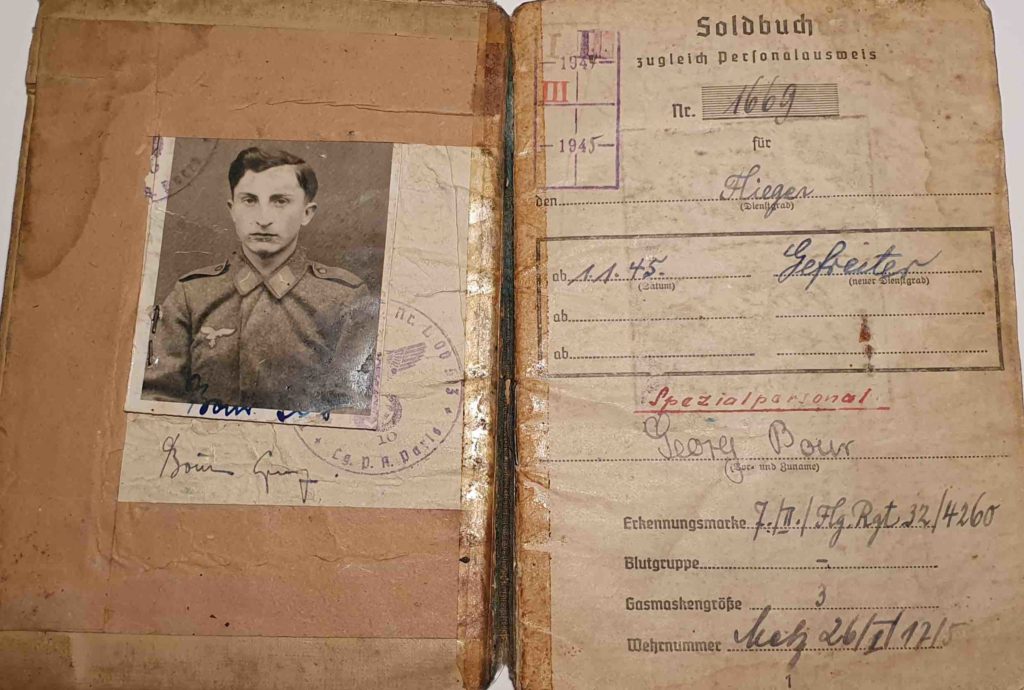 Bour
Bour Georg
Nr. L 00 113
Lg. P. A. Paris
Soldbuch
zugleich Personalausweis
I I.
1945
III
1945
Nr. 1669
für
den Flieger
(Dienstgrad)
ab 1.1.45. Gefreiter
(Datum) (neuer Dienstgrad)
ab
ab
Spezialpersonal
Georg Bour
(Vor- und Zuname)
Erkennungsmarke 7./II./Flg. Rgt. 32/4260
Blutgruppe -
Gasmaskengröße 3
Wehrnummer Metz 26/I/17/5
1